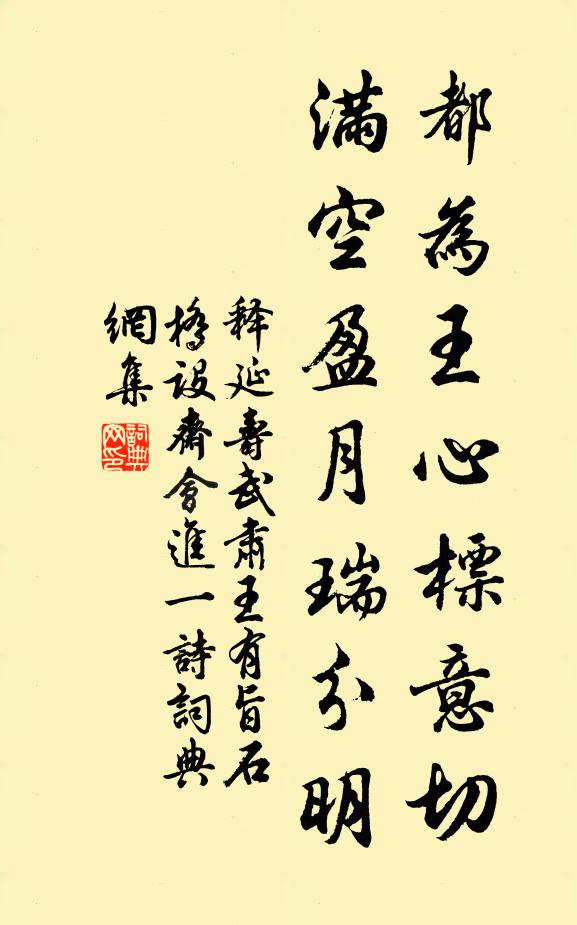 都為王心標意切
滿空盈月瑞分明
釋延壽武肅王有旨石
橋設齋會進一詩詞典
網集
詞典網印